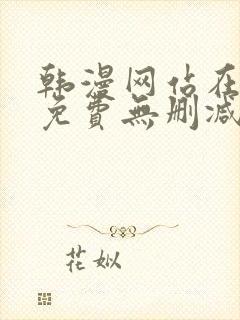 韩漫网站在
免費無刪减
花姒